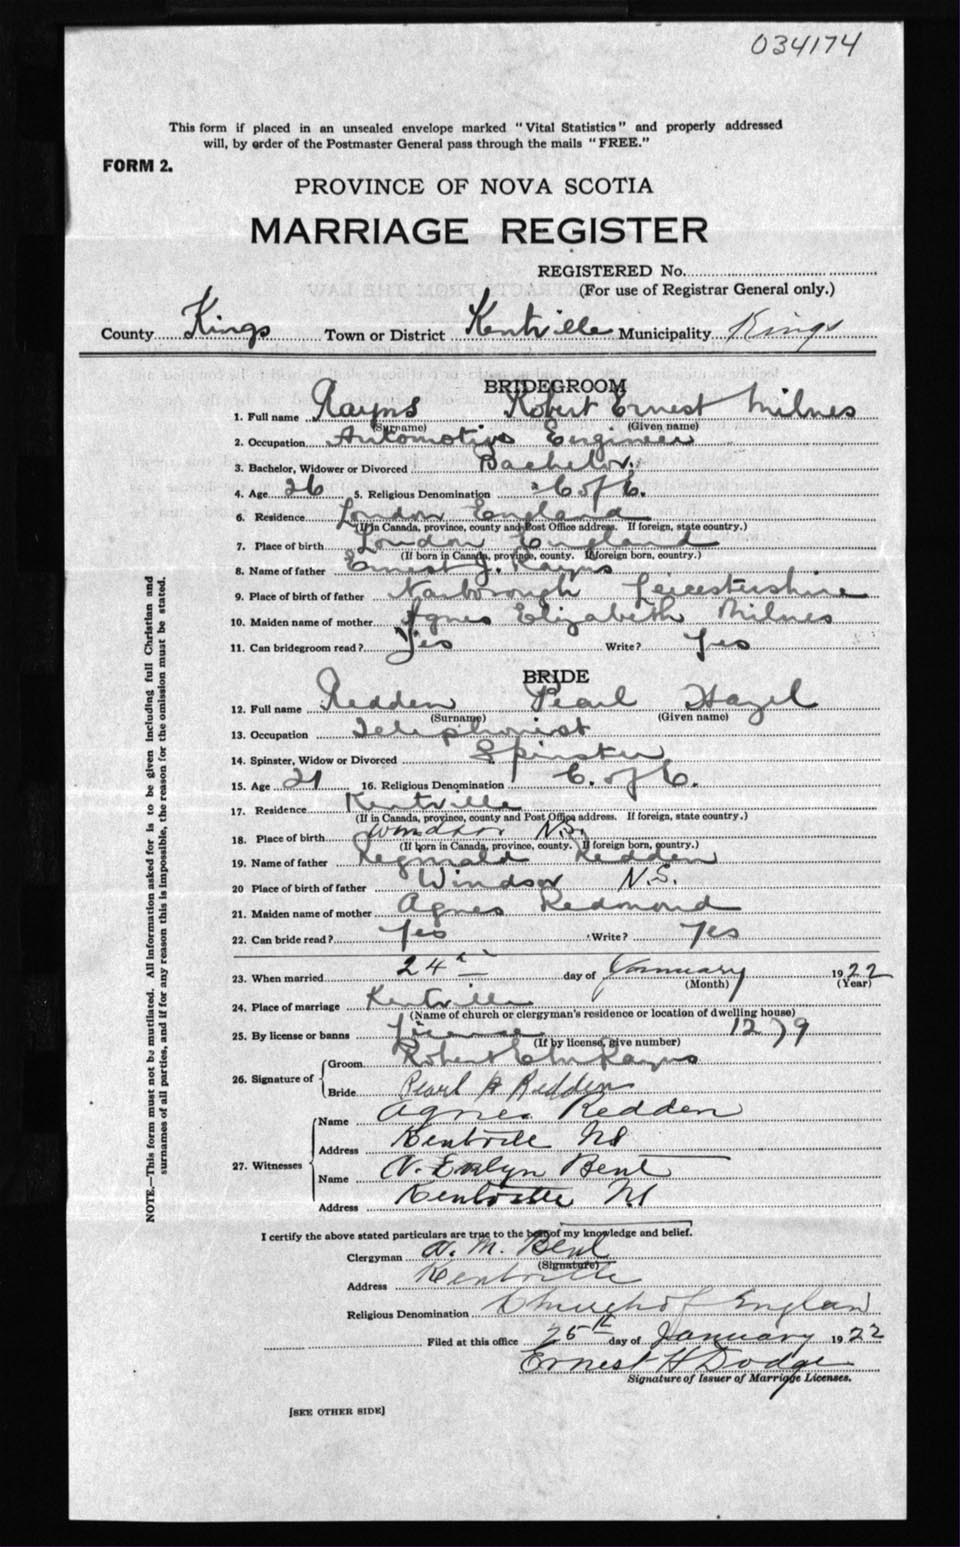 034174
This form if placed in an unsealed envelope marked "Vital Statistics" and properly addressed
will, by order of the Postmaster General pass through the mails "FREE."
FORM 2.
PROVINCE OF NOVA SCOTIA
MARRIAGE REGISTER
REGISTERED No.
(For use of Registrar General only.)
County Kings Town or District Kentville Municipality Kings
BRIDEGROOM
1. Full name Rayns Robert Ernest Milnes
(Surname) (Given name)
2. Occupation Automotive Engineer
3. Bachelor, Widower or Divorced Bachelor
4. Age 26 5. Religious Denomination C of E.
6. Residence London England
(If in Canada, province, county and Post Office address. If foreign, state country.)
7. Place of birth London England
(If born in Canada, province, county. If foreign born, country.)
8. Name of father Ernest J. Rayns
9. Place of birth of father Narborough Leicestershire
10. Maiden name of mother Agnes Elizabeth Milnes
11. Can bridegroom read? Yes Write? Yes
BRIDE
12. Full name Redden Pearl Hazel
(Surname) (Given name)
13. Occupation Telephonist
14. Spinster, Widow or Divorced Spinster
15. Age 21 16. Religious Denomination C. of E.
17. Residence Kentville
(If in Canada, province, county and Post Office address. If foreign, state country.)
18. Place of birth Windsor N.S.
(If born in Canada, province, county. If foreign born, country.)
19. Name of father Reginald Redden
20 Place of birth of father Windsor N.S.
21. Maiden name of mother Agnes Redmond
22. Can bride read? Yes Write? Yes
23. When married 24th day of January 1922
(Month) (Year)
24. Place of marriage Kentville
(Name of church or clergyman's residence or location of dwelling house)
25. By license or banns License 1279
(If by license, give number)
26. Signature of Groom Robert E M Rayns
Bride Pearl H Redden
27. Witnesses Name Agnes Redden
Address Kentville NS
Name A. Evelyn Bent
Address Kentville NS
I certify the above stated particulars are true to the best of my knowledge and belief.
Clergyman A. M. Bent
(Signature)
Address Kentville
Religious Denomination Church of England
Filed at this office 25th day of January 1922
Ernest H Dodge
Signature of Issuer of Marriage Licenses.
[SEE OTHER SIDE]
NOTE.—This form must not be mutilated. All information asked for is to be given including full Christian and
surnames of all parties, and if for any reason this is impossible, the reason for the omission must be stated.